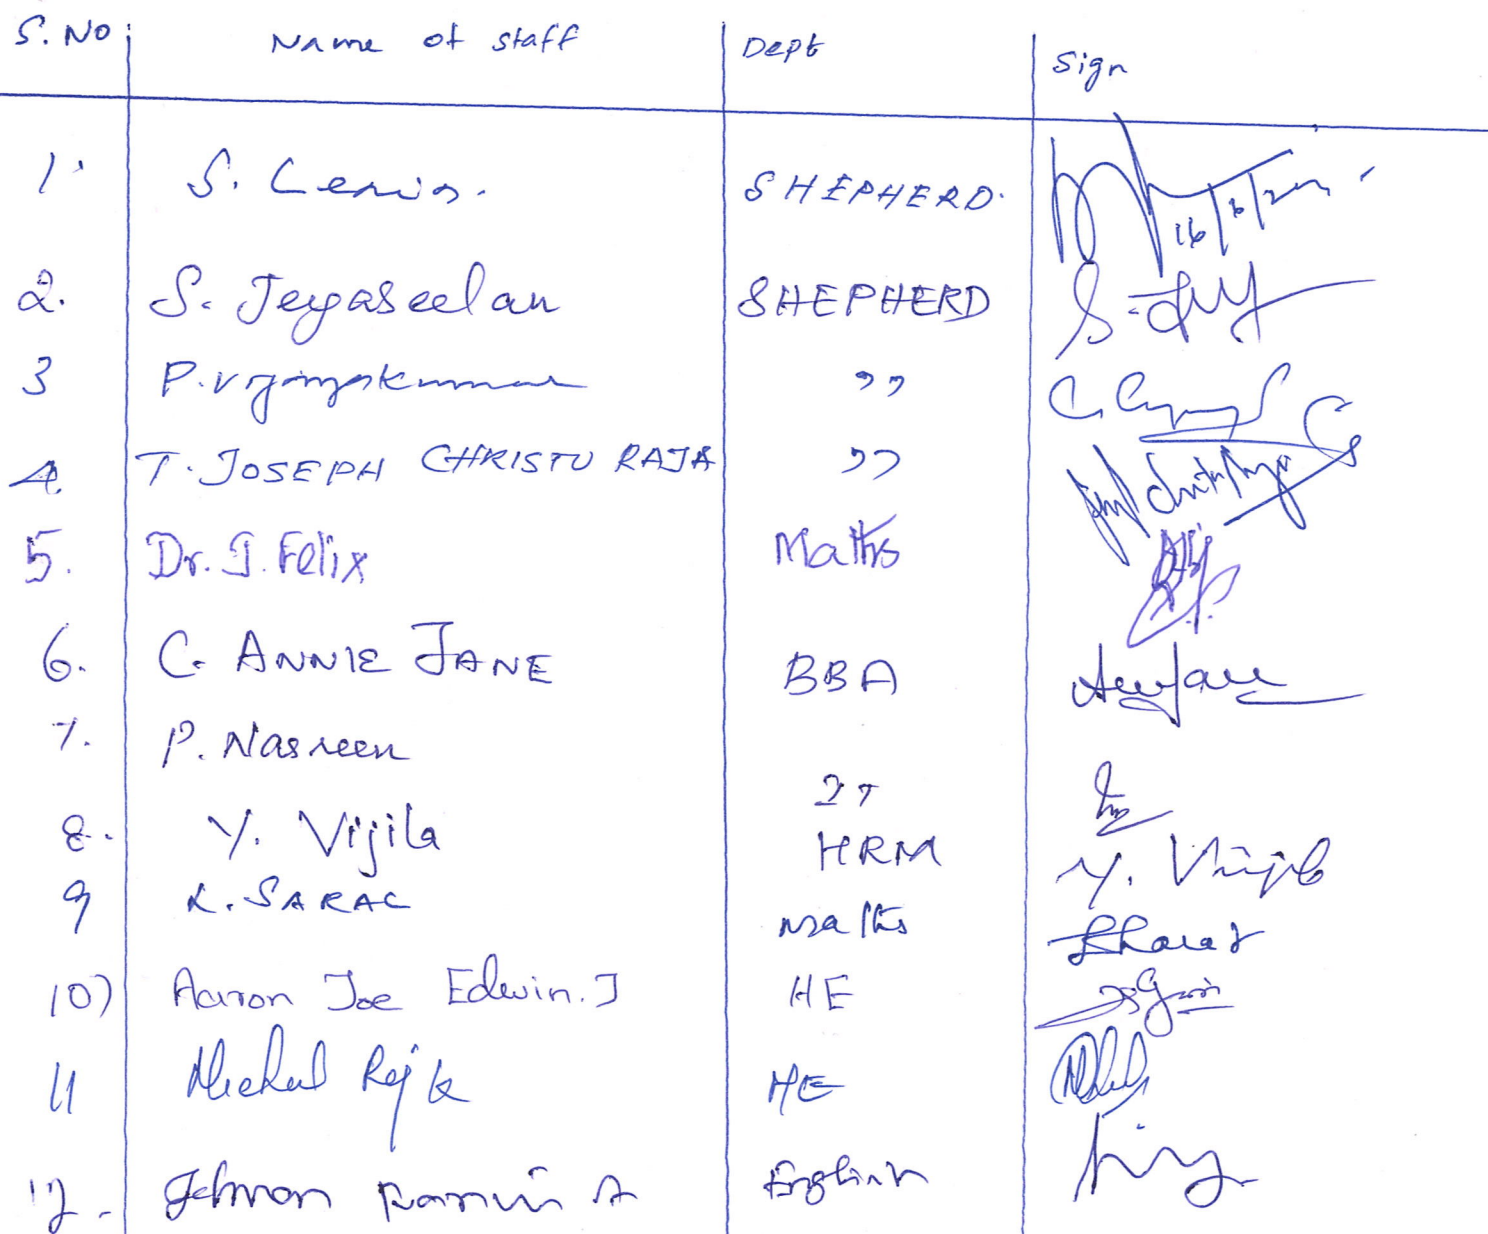 S.No Name of staff Dept Sign
1. S. Lenin. SHEPHERD. 16/6/20
2. S. Jeyaseelan SHEPHERD
3 P. Vijayakumar ,,
4. T. JOSEPH CHRISTU RAJA ,,
5. Dr. J. Felix Maths
6. C. ANNIE JANE BBA
7. P. Nasreen IT
8. Y. Vijila HRM Y. Vijila
9 K. SARAL Maths
10) Aaron Joe Edwin. J HE
11 Michael Raj K HE
12. A English